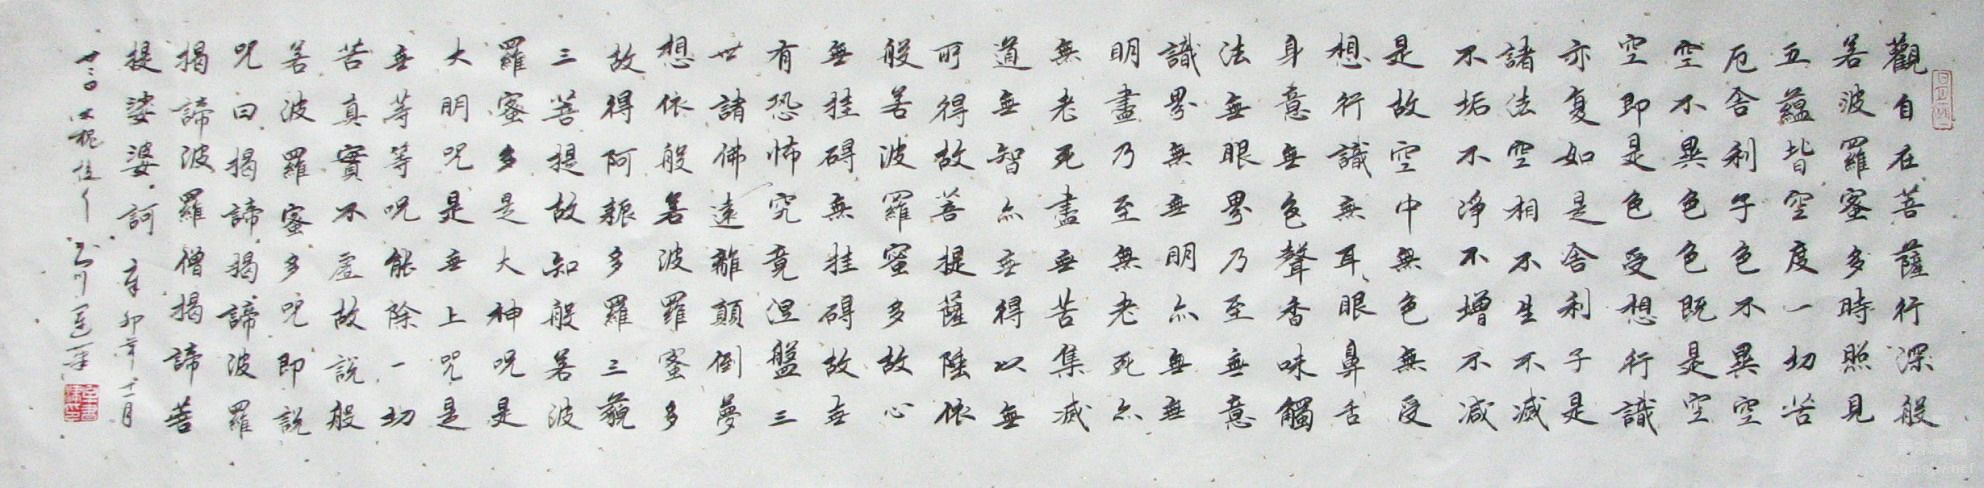 觀自在菩薩行深般
若波羅蜜多時照見
五蘊皆空度一切苦
厄舍利子色不異空
空不異色色既是空
空即是色受想行識
亦复如是舍利子是
諸法空相不生不滅
不垢不淨不增不减
是故空中無色無受
想行識無耳眼鼻舌
身意無色聲香味觸
法無眼界乃至無意
識界無無明亦無無
明盡乃至無老死亦
無老死盡無苦集滅
道無智亦無得以無
所得故菩提薩陲依
般若波羅蜜多故心
無挂碍無挂碍故無
有恐怖究竟涅盤三
世諸佛遠離顛倒夢
想依般若波羅蜜多
故得阿耨多羅三藐
三菩提故知般若波
羅蜜多是大神咒是
大明咒是無上咒是
無等等咒能除一切
苦真實不虛故說般
若波羅蜜多咒即說
咒曰揭諦揭諦波羅
揭諦波羅僧揭諦菩
提娑婆訶 辛卯年